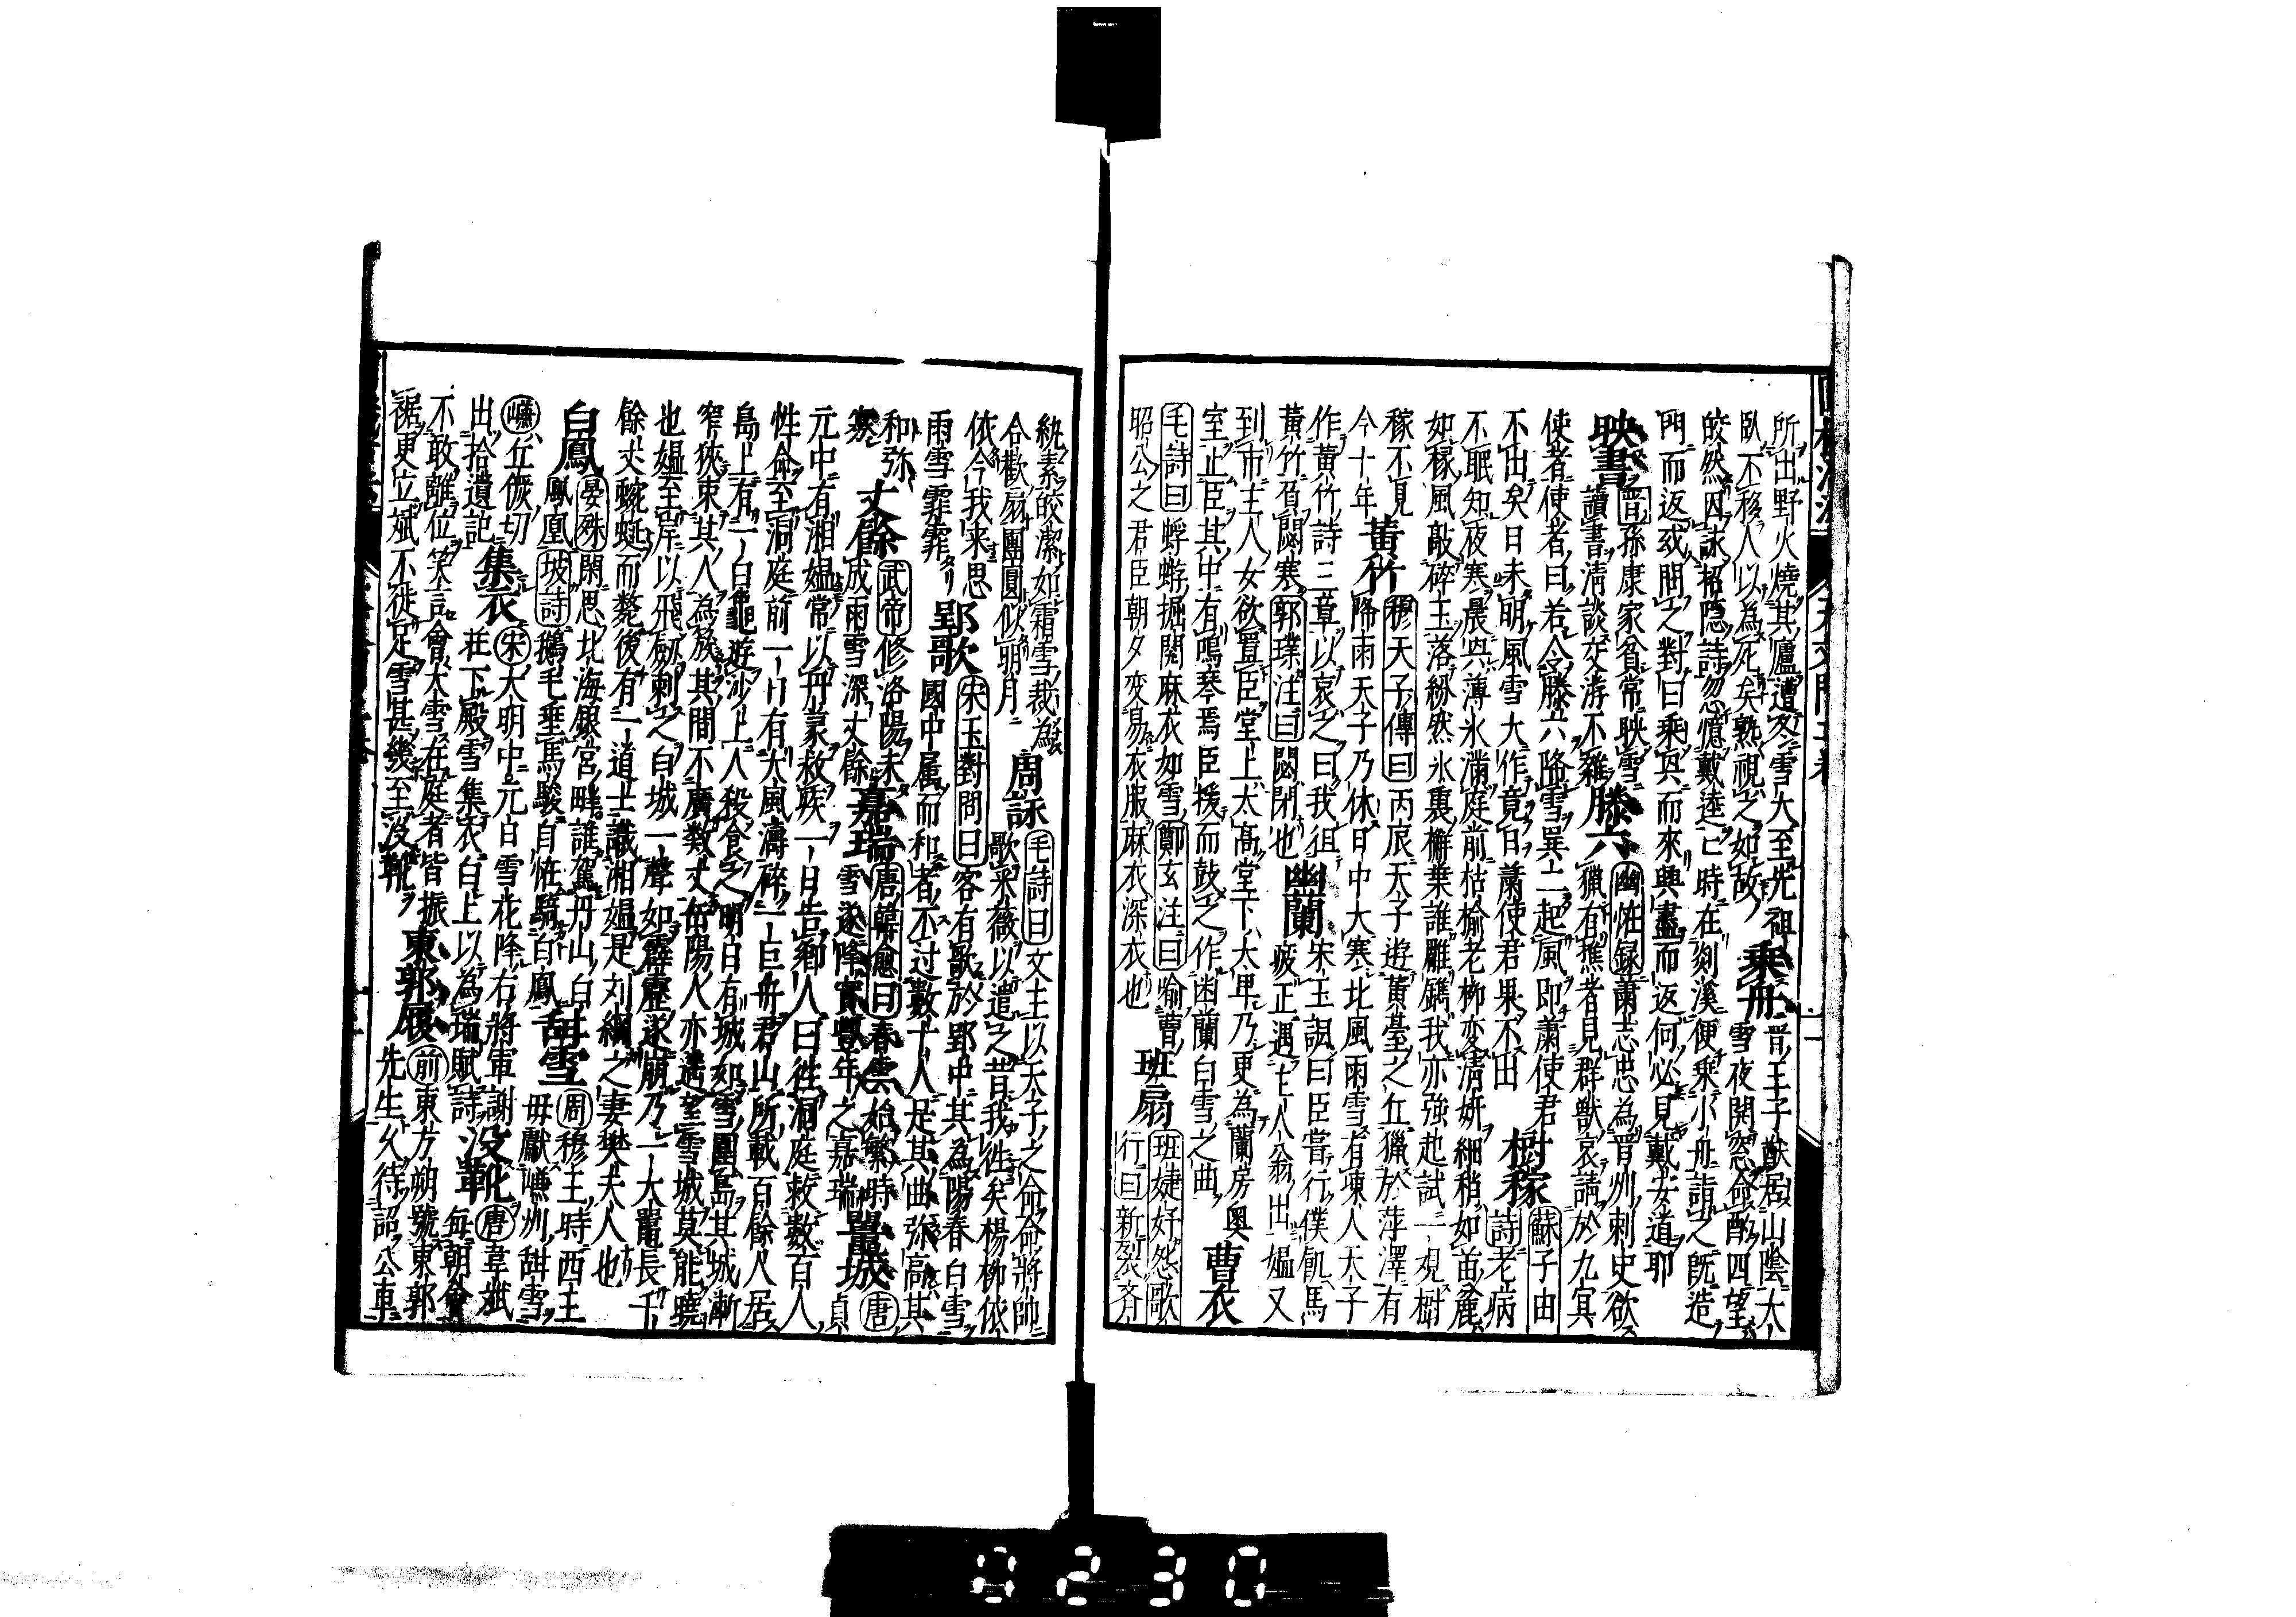 所出野火燒其廬遭冬雪大至先袒
臥不移人以為死矣熟視之如故
乗舟
晋王子猷居山陰大
雪夜開窓命酌四望
皎然因詠招隠詩忽憶戴逵亡時在剡溪便乗小舟詣之既造
門而返或問之對曰乗兴而來興盡而返何必見戴安道耶
映書
晋孫康家貧常映雪
讀書淸談交游不雜
滕六
幽怪録蕭志忠為晋州刺史欲
獵有樵者見群獣哀請於九冥
使者使者曰若令滕六降雪巽二起風即蕭使君
不出矣日未明風雪大作竟日蕭使君果不出
樹稼
蘇子由
詩老病
不眠知夜寒晨興薄氷滿庭前枯楡老栁変淸妍細稍如苗麁
如稼風敲碎玉落紛然氷裹檞葉誰雕鐫我亦強起試一覌樹
稼不見
今十年
黄竹
穆天子傳曰丙辰天子遊黄臺之丘獵於萍澤有
降雨天子乃休日中大寒北風雨雪有凍人天子
作黄竹詩三章以哀之曰我徂
黄竹負閟寒郭璞注曰閟閉也
幽蘭
宋玉諷曰臣甞行僕飢馬
疲正遇主人翁出媪又
到市主人女欲置臣堂上太髙堂下太卑乃更為蘭房奥
室止臣其中有鳴琴焉臣援而鼓之作幽蘭白雪之曲
曹衣
毛詩曰蜉蝣掘閲麻衣如雪鄭玄注曰喻曹
昭公之君臣朝夕変易衣服麻衣深衣也
班扇
班婕妤怨歌
行曰新裂斉
紈素皎潔如霜雪裁為
合歡扇團圓似明月
周詠
毛詩曰文王以天子之命命將帥
歌采薇以遣之昔我徃矣楊栁依
依今我来思
雨雪霏霏
郢歌
宋玉對問曰客有歌於郢中其為陽春白雪
國中属而和者不过數十人是其曲弥高其
和弥
寡
丈餘
武帝修洛陽未
成雨雪深丈餘
嘉瑞
唐韓愈曰春雲始繁時
雪遂降實豐年之嘉瑞
鼉城
唐
貞
元中有湘媪常以丹篆救疾一日告郷人曰徃洞庭救數百人
性命至洞庭前一日有大風濤碎一巨舟君山所載百餘人居
島上有一白鼉遊沙上人殺食之明日有城如雪圍島其城漸
窄狹束其人為簇其間不廣数丈岳陽人亦遥望雪城莫能曉
也媪至岸以飛劍刺之白城一聲如霹靂遂崩乃一大鼉長千
餘丈蜿蜒而斃後有一道士識湘媪是刘綱之妻樊夫人也
白鳳
晏殊閑思北海銀宮畔誰駕丹山白
鳳凰坡詩鵝毛垂馬駿自怪騎白鳳
甜雪
周穆王時西王
毋獻嵰州甜雪
嵰丘倹切
出拾遺記
集衣
宋大明中元日雪花降右將軍謝
荘下殿雪集衣白上以為瑞賦詩
没靴
唐韋斌
毎朝會
不敢離位笑言會大雪在庭者皆振
裾更立斌不徙足雪甚幾至没靴
東郭履
前東方朔號東郭
先生久待詔公車
0230